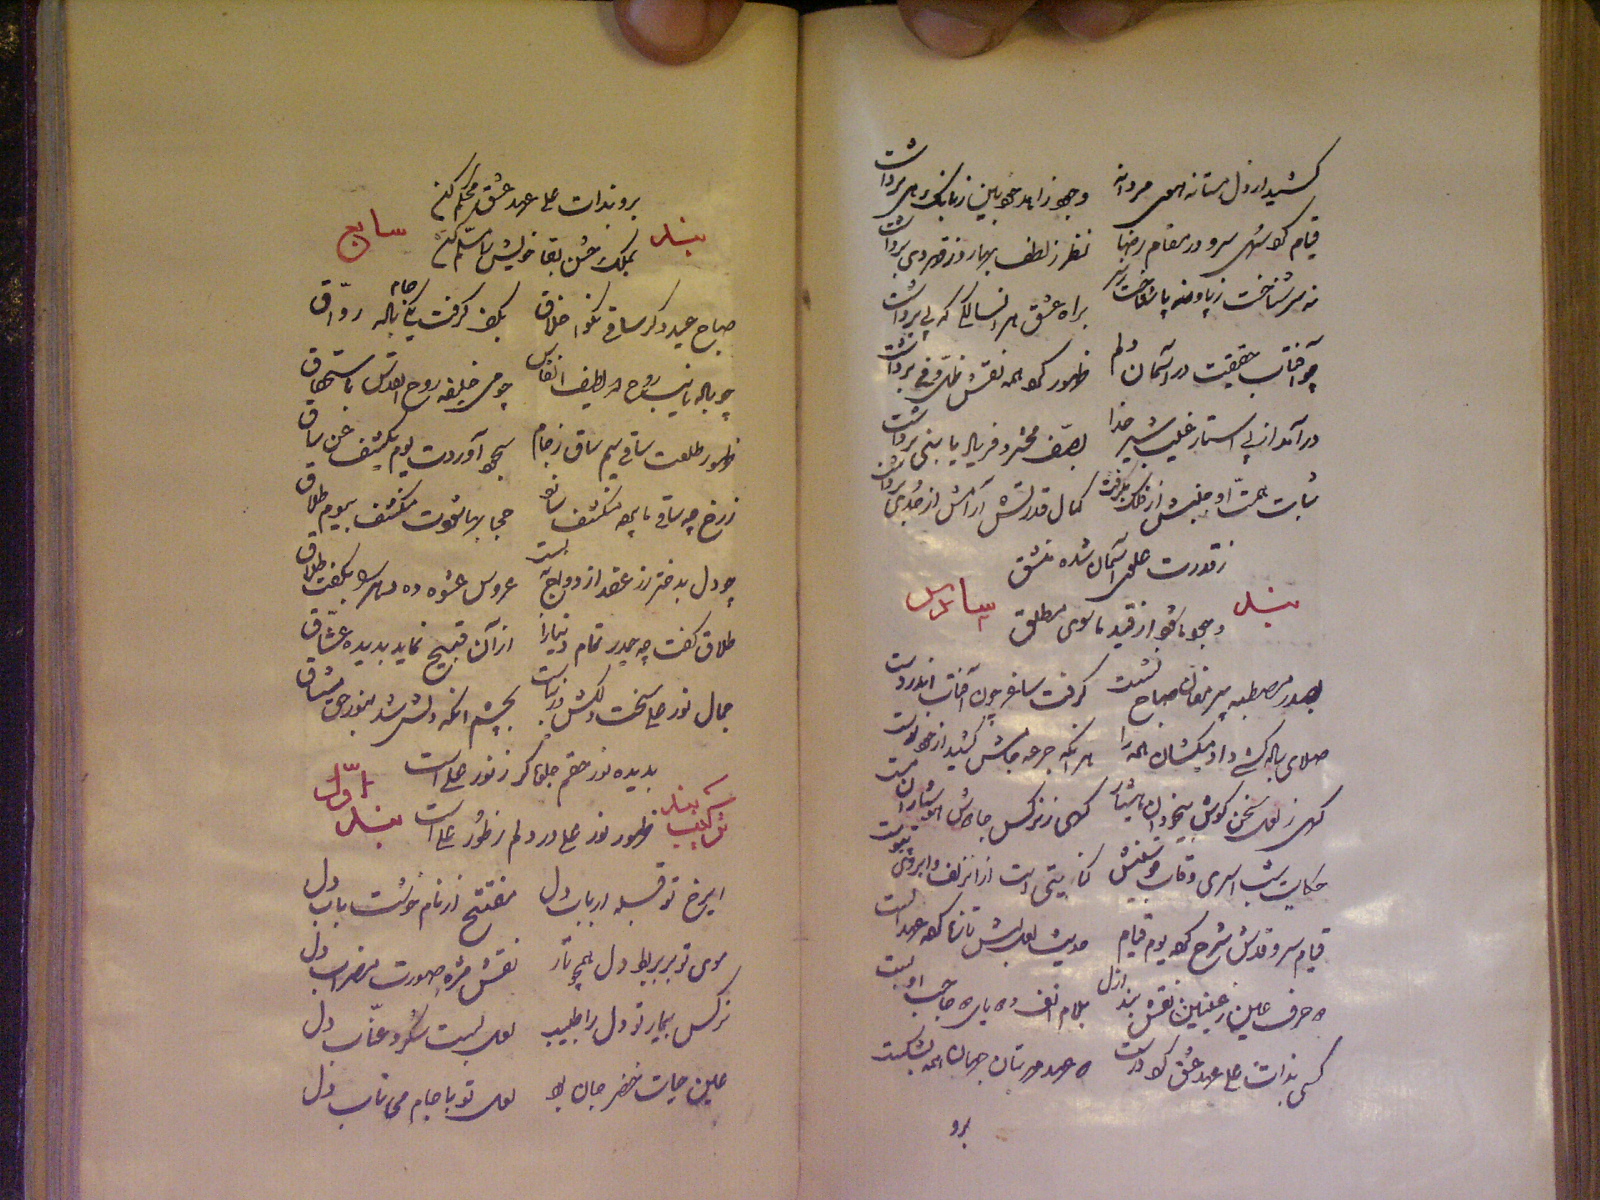 کشید از دل مستانه هوی مردانه وجود زاهد خودبین ز بانگ هی برداشت
قیام کو سهی سرو در مقام رضا نظر ز لطف بهار و ز قهر دی برداشت
نه سر شناخت ز پا و نه پا شناخت ز سر براه عشق هر انسالکی که پی برداشت
چو آفتاب حقیقت در آسمان دلم ظهور کرد همه نقش ظل و فی برداشت
درآمد از پی استار غیب شیر خدا
ثبات همت او جنبش از فلک بگرفت کمال قدرتش آرامش از جدی برداشت
ز قدرت علی آسمان شده منشق
بند سادس
وجود ما قوا از قید ماسوی مطلق
بصدر مصطبه پیر مغان صباح نشست گرفت ساغر چون آفتاب اندر دست
صلای پیاله کشی داد میکشان همه را هر آنکه جرعه جامش کشید از خود رست
گهی ز لعل سخن گوش بیخودان هشیار گهی ز نرگس جادوش هوشیاران مست
حکایت شب اسری و قاب قوسینش کنایتی است از آن زلف و ابروی پیوست
قیام سرو قدش شرح کرد یوم قیام حدیث لعل لبش تازه کرد عهد الست
دو حرف عین ز عینین نقش بند ازل بلام انف و دو یای دو حاجب او بست
کسی بذات علی عهد عشق کرد درست دو عهد مهر بتان جهان همه بشکست
برو
برو بذات علی عهد عشق محکم کن
بند سابع
بملک حسن بقا خویش را مسلم کن
صباح عید دگر ساقی نکو اخلاق بکف گرفت یکی جام پیاله رواق
چو پیاله نایب روح لطیف انفاس چو می خلیفه روح القدس باستحقاق
ظهور طلعت ساقی سیم ساق ز جام سجود آوردت یوم یکشف عن ساق
ز رخ چه ساقی ما پرده منکشف سازد حجابهای هویت منکشف بیوم طلاق
چو دل بدختر رز عقد ازدواج بست عروس عشوه ده دهر را بگفت طلاق
طلاق گفت چه حیدر تمام دنیا را از آن قبیح نماید بدیده عشاق
جمال نور علی سخت دلکش و زیباست بچشم آنکه دلش شد بنور حق مشتاق
بدیده نور حقم جلوه گر ز نور علی است
ترکیب بند بند اول
ظهور نور علی در دلم ز طور علی است
ای رخ تو قبله ارباب دل مفتتح از نام خوشت باب دل
موی تو بر بربط دل همچو تار نقش مژه صورت مضراب دل
نرگس بیمار تو دل را طبیب لعل لبت شکر و عناب دل
عین حیات خضر جان بود لعل تو با جام می ناب دل